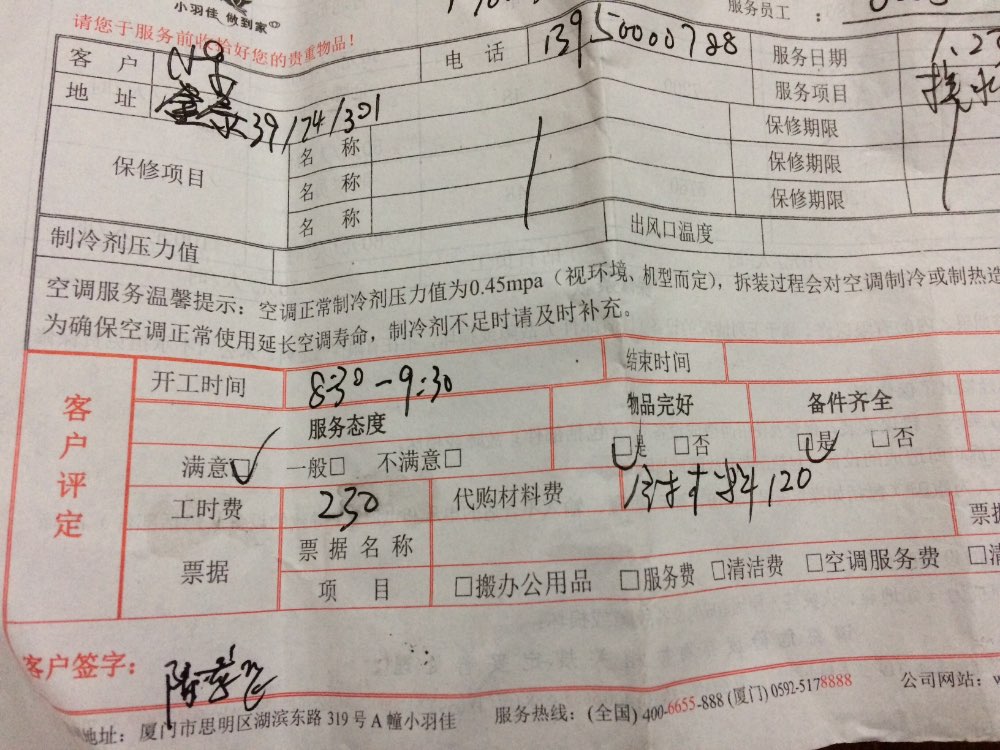 小羽佳 做到家
服务员工：
请您于服务前收拾好您的贵重物品！
客 户 电 话 13950000788 服务日期 1.2
地 址 39/74/301 服务项目
保修项目 名 称 保修期限
名 称 保修期限
名 称 保修期限
制冷剂压力值 出风口温度
空调服务温馨提示：空调正常制冷剂压力值为0.45mpa（视环境、机型而定），拆装过程会对空调制冷或制热造
为确保空调正常使用延长空调寿命，制冷剂不足时请及时补充。
客户评定
开工时间 8:30－9:30 结束时间
服务态度 物品完好 备件齐全
满意□ 一般□ 不满意□ □是 □否 □是 □否
工时费 230 代购材料费 材料120
票据 票据名称 票据
项 目 □搬办公用品 □服务费 □清洁费 □空调服务费 □清
客户签字：
地址：厦门市思明区湖滨东路 319 号 A 幢小羽佳 服务热线：(全国) 400-6655-888 (厦门) 0592-5178888 公司网站：w